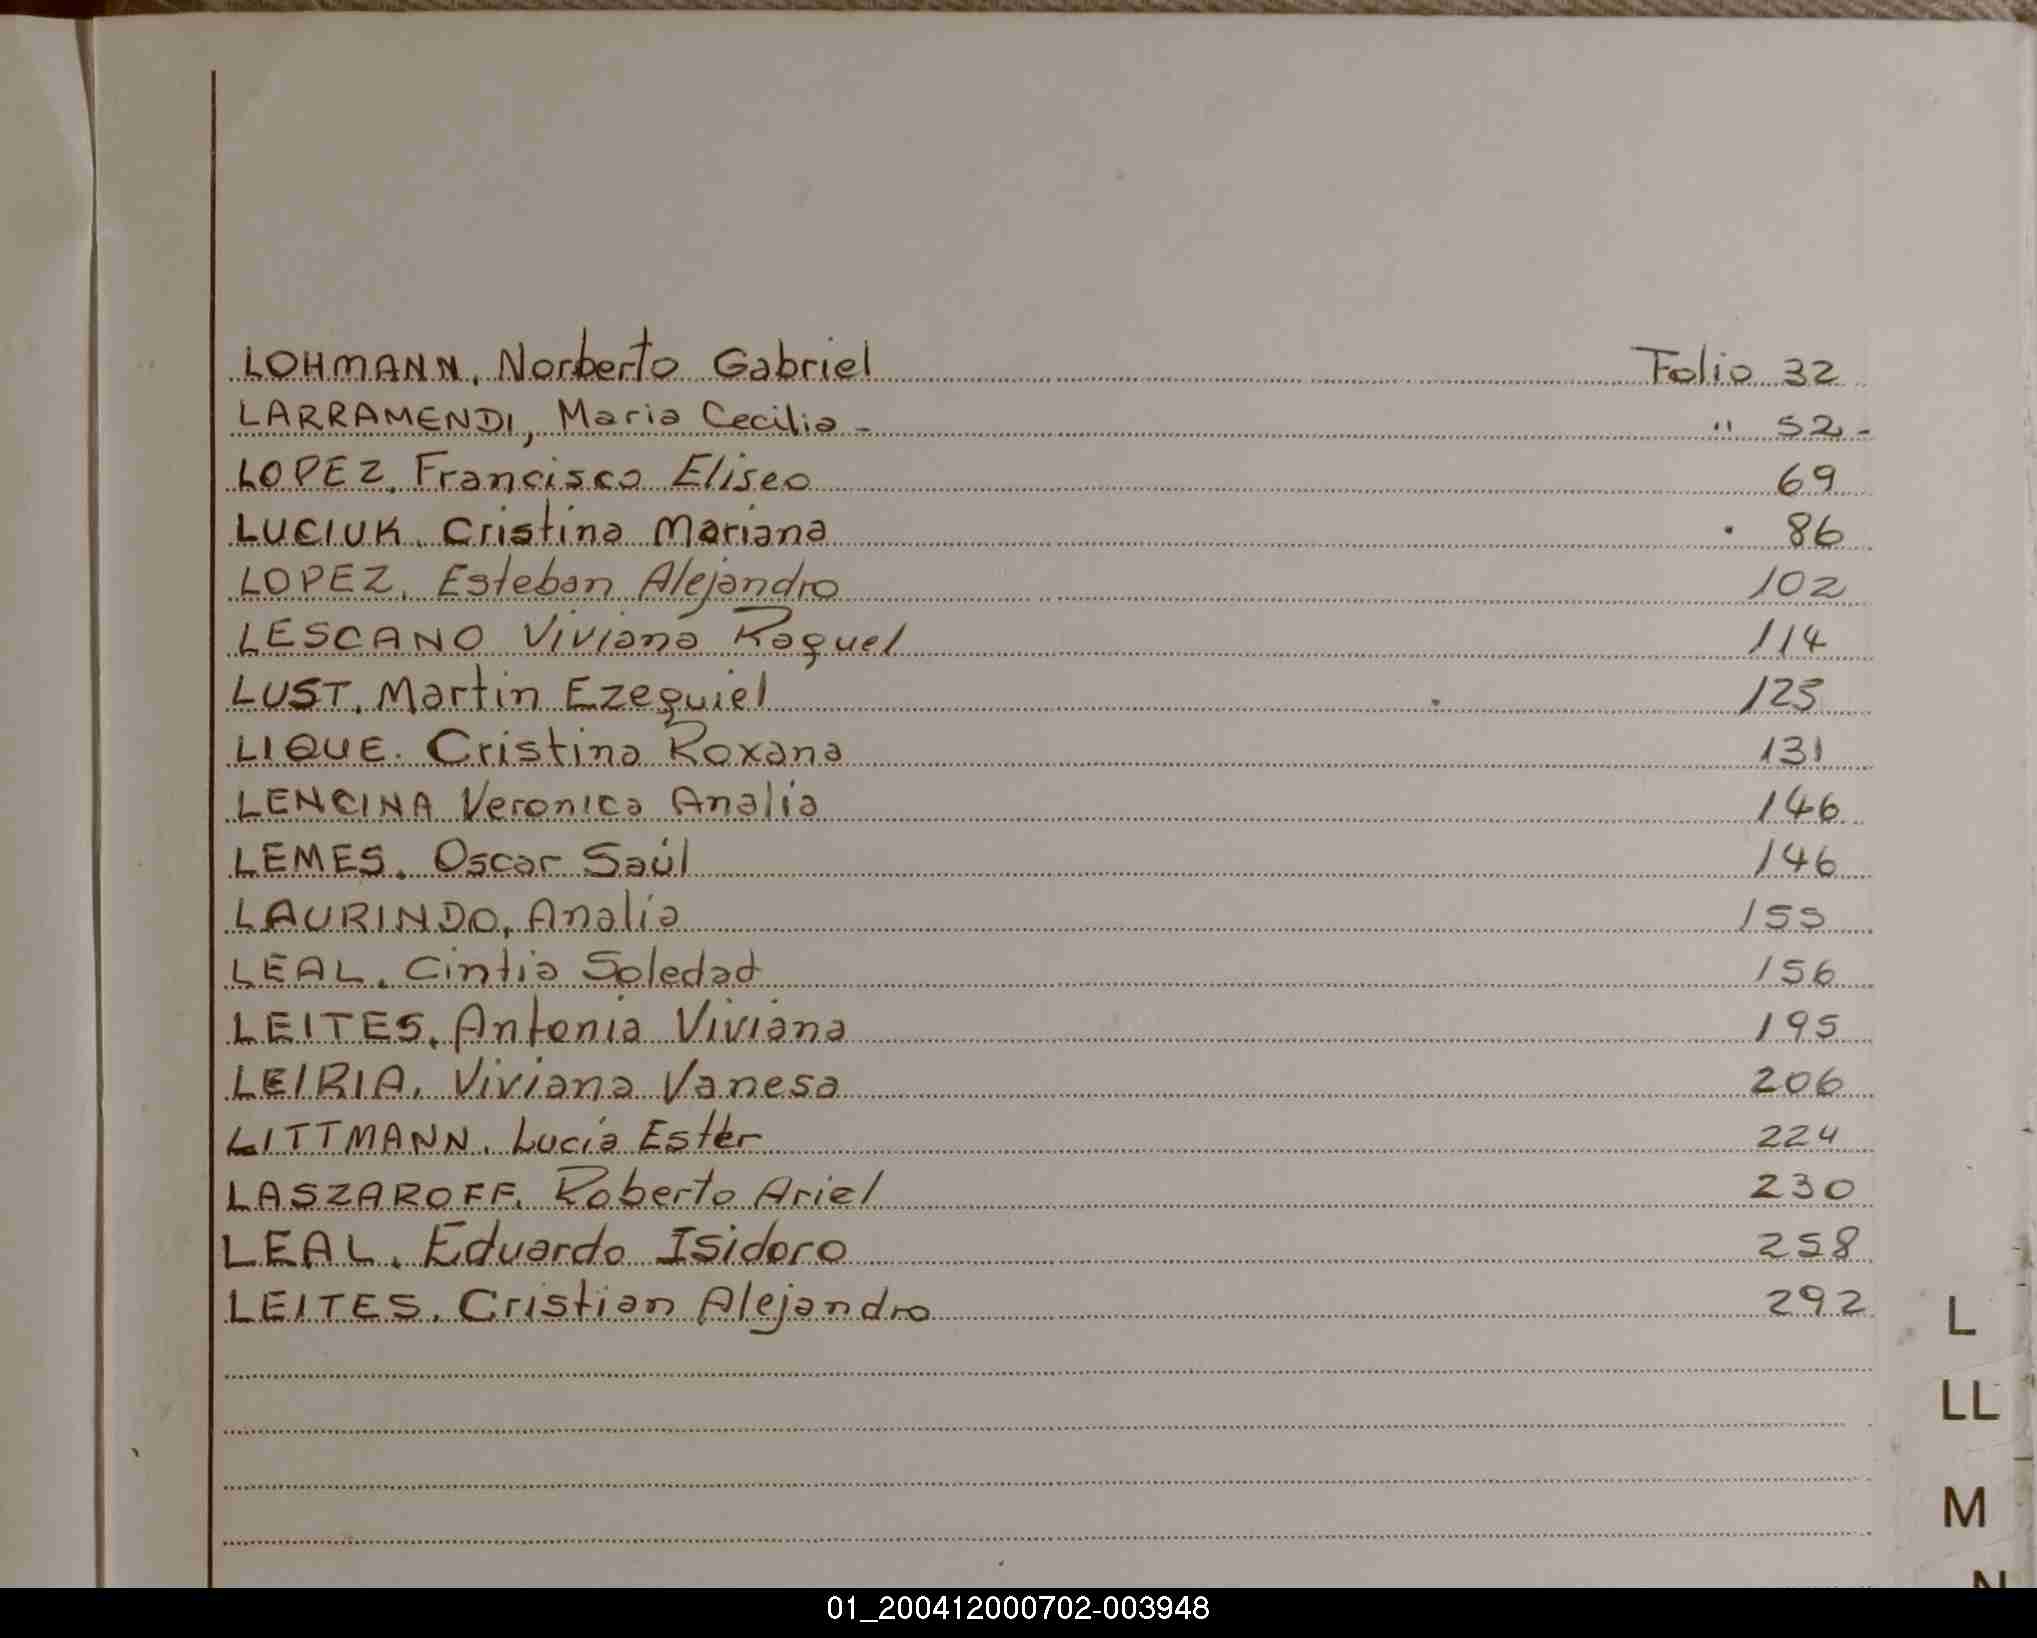 LOHMANN, Norberto Gabriel Folio 32
LARRAMENDI, Maria Cecilia - " 52 -
LOPEZ, Francisco Eliseo 69
LUCIUK, Cristina Mariana 86
LOPEZ, Esteban Alejandro 102
LESCANO Viviana Raquel 114
LUST, Martin Ezequiel 125
LIQUE. Cristina Roxana 131
LENCINA Veronica Analia 146
LEMES, Oscar Saúl 146
LAURINDO, Analía 155
LEAL, Cintia Soledad 156
LEITES, Antonia Viviana 195
LEIRIA, Viviana Vanesa 206
LITTMANN, Lucía Ester 224
LASZAROFF, Roberto Ariel 230
LEAL, Eduardo Isidoro 258
LEITES, Cristian Alejandro 292
L
LL
M
N
01_200412000702-003948